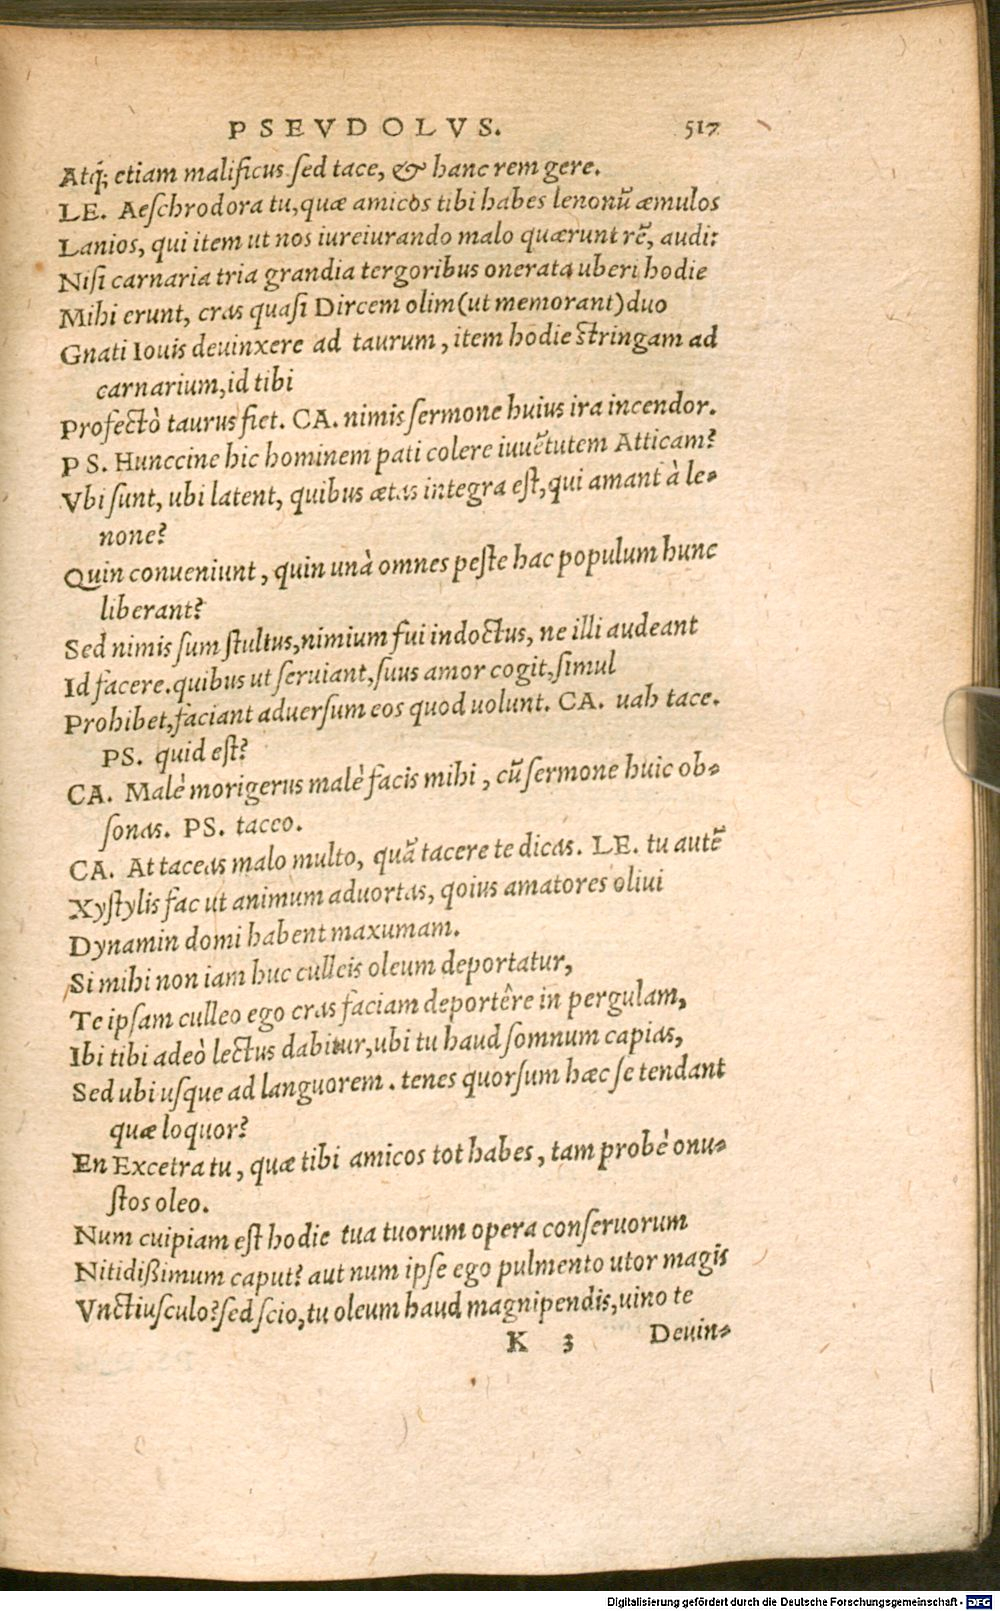 PSEVDOLVS. 517
Atq́; etiam malificus sed tace, & hanc rem gere.
LE. Aeschrodora tu, quæ amicos tibi habes lenonũ æmulos
Lanios, qui item ut nos iureiurando malo quærunt rẽ, audi:
Nisi carnaria tria grandia tergoribus onerata uberi hodie
Mihi erunt, cras quasi Dircem olim (ut memorant) duo
Gnati Iouis deuinxere ad taurum, item hodie stringam ad
carnarium, id tibi
Profectò taurus fiet. CA. nimis sermone huius ira incendor.
PS. Hunccine hic hominem pati colere iuuẽtutem Atticam?
Vbi sunt, ubi latent, quibus ætas integra est, qui amant à le-
none?
Quin conueniunt, quin unà omnes peste hac populum hunc
liberant?
Sed nimis sum stultus, nimium fui indoctus, ne illi audeant
Id facere. quibus ut seruiant, suus amor cogit, simul
Prohibet, faciant aduersum eos quod uolunt. CA. uah tace.
PS. quid est?
CA. Malè morigerus malè facis mihi, cũ sermone huic ob-
sonas. PS. taceo.
CA. At taceas malo multo, quã tacere te dicas. LE. tu autẽ
Xystylis fac ut animum aduortas, qoius amatores oliui
Dynamin domi habent maxumam.
Si mihi non iam huc culleis oleum deportatur,
Te ipsam culleo ego cras faciam deportêre in pergulam,
Ibi tibi adeò lectus dabitur, ubi tu haud somnum capias,
Sed ubi usque ad languorem. tenes quorsum hæc se tendant
quæ loquor?
En Excetra tu, quæ tibi amicos tot habes, tam probè onu-
stos oleo.
Num cuipiam est hodie tua tuorum opera conseruorum
Nitidißimum caput? aut num ipse ego pulmento utor magis
Vnctiusculo? sed scio, tu oleum haud magnipendis, uino te
K 3 Deuin-
Digitalisierung gefördert durch die Deutsche Forschungsgemeinschaft - DFG